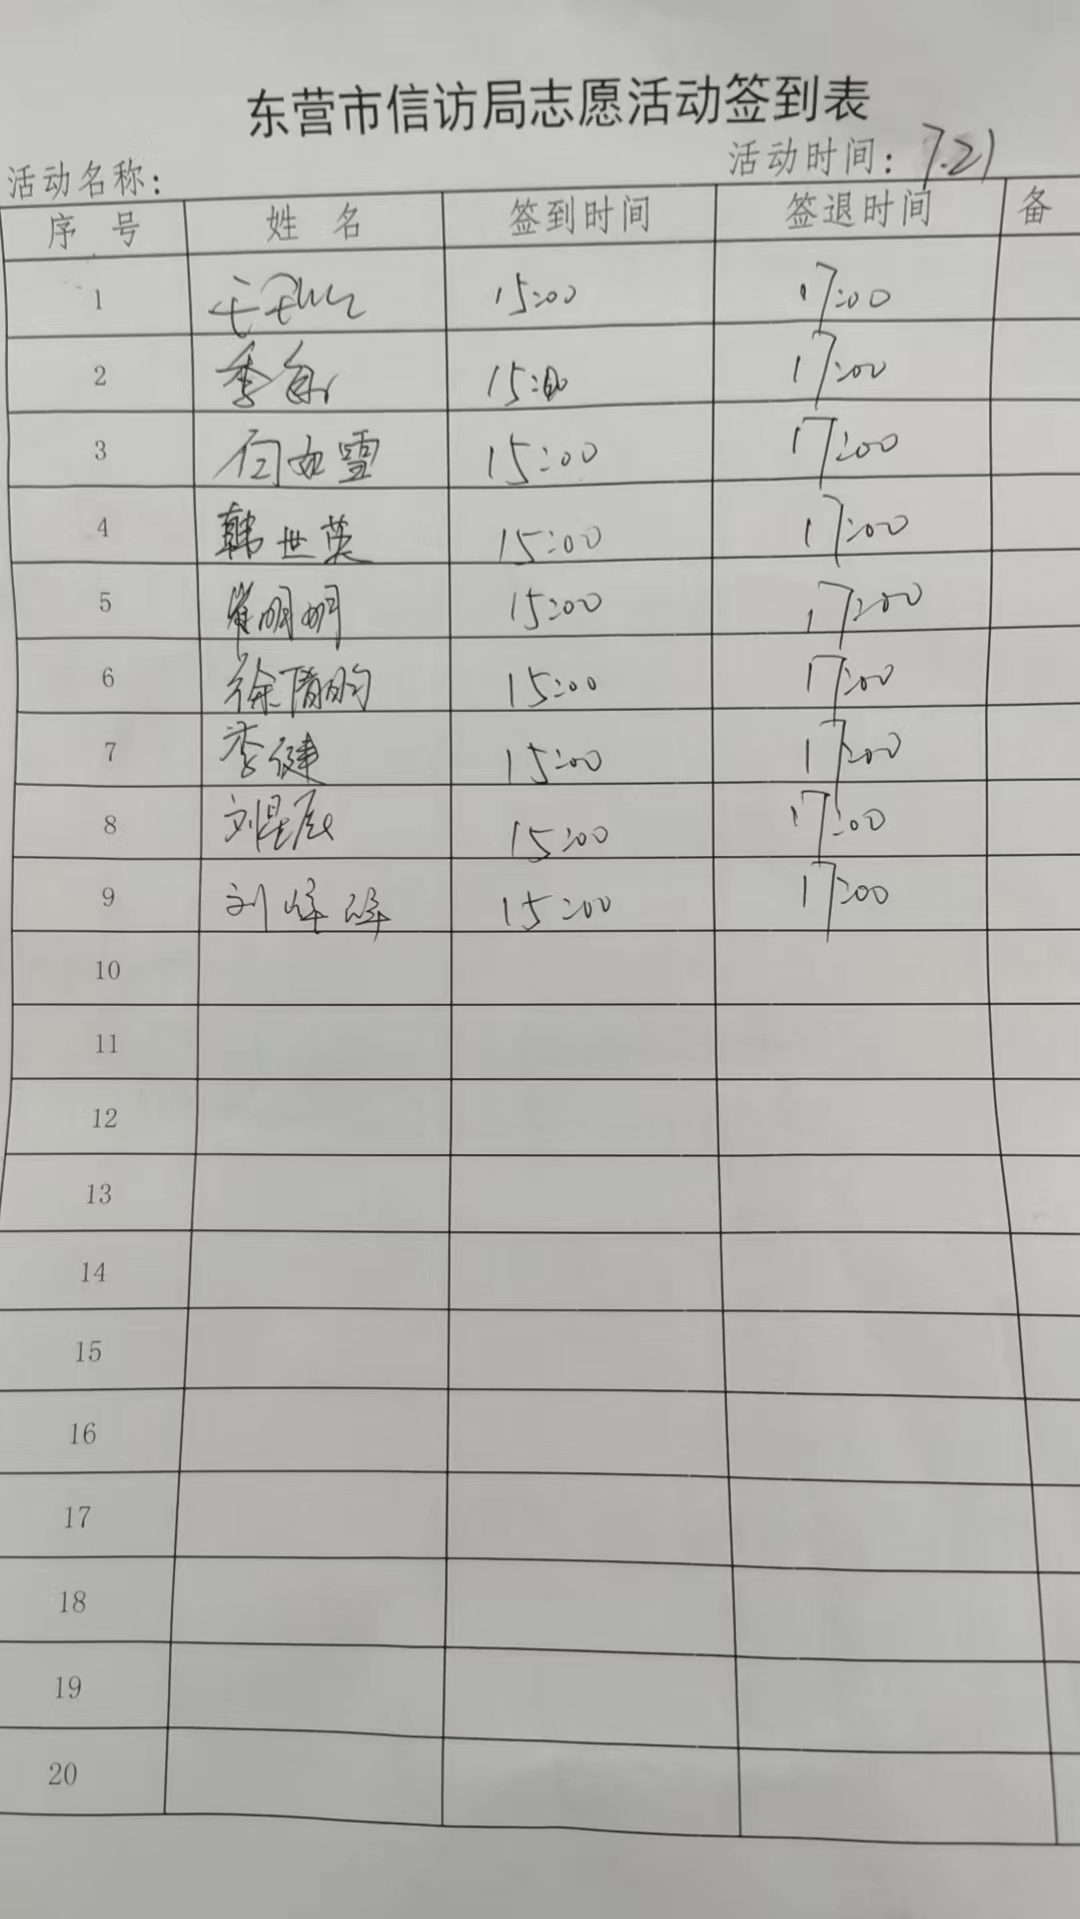 东营市信访局志愿活动签到表
活动名称： 活动时间：7.21
序 号 姓 名 签到时间 签退时间 备
1 15:00 17:00
2 季 15:00 17:00
3 如雪 15:00 17:00
4 韩世英 15:00 17:00
5 崔明明 15:00 17:00
6 徐 15:00 17:00
7 李健 15:00 17:00
8 刘星辰 15:00 17:00
9 刘峰 15:00 17:00
10
11
12
13
14
15
16
17
18
19
20